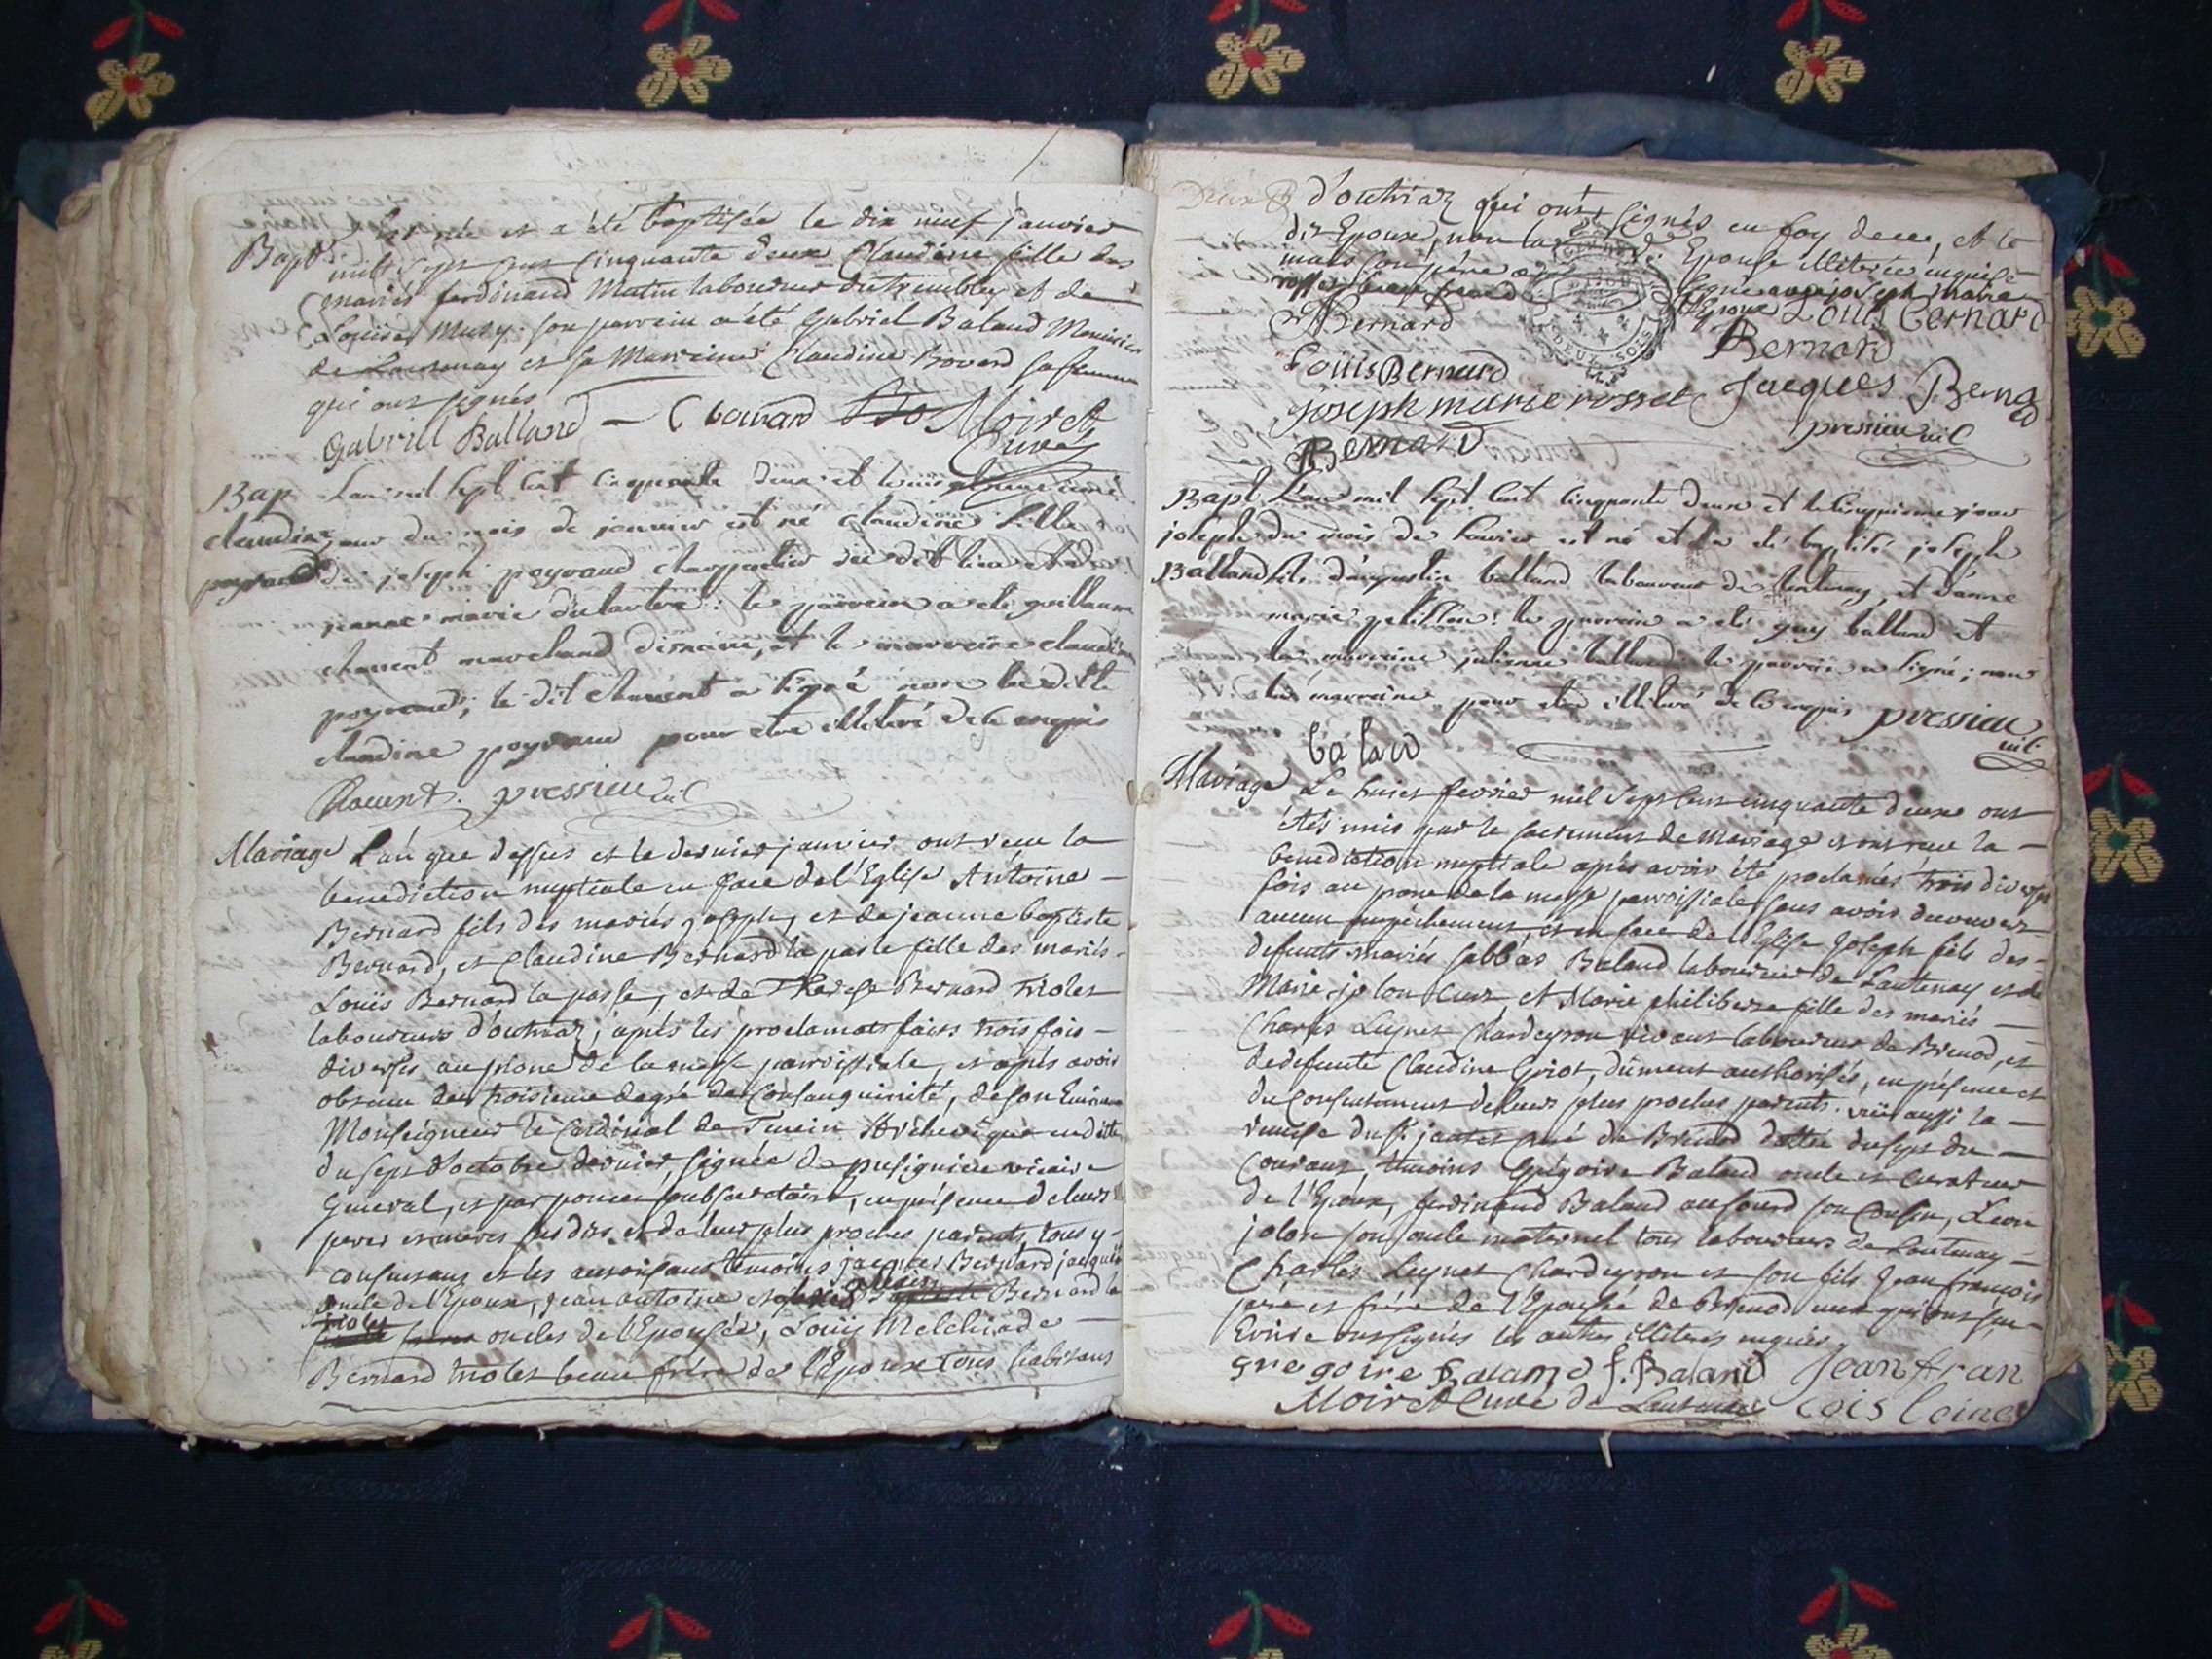 Bapt. Est née et a été baptisée le dix neuf janvier
mil sept cens cinquante deux Claudine fille des
mariés ferdinand Mathieu laboureur du tremblay et de
Louise Musy. son parrein a été Gabriel Baland Menuisier
de Lantenay et sa Marreine Claudine Bovard sa femme
qui ont signés
Gabriel Balland C bouvard Moiret
Curé
Bap L'an mil sept cent cinquante deux et le
claudine jour du mois de janvier est né claudine fille
poyraud de joseph poyraud charpentier du dit lieu et de
jeanne marie : le parrein a eté guillaume
chament marchand et la marreine claudine
poyraud; le dit chament a signé non la ditte
claudine poyraud pour etre illiteré de ce enquis
Chament. pressieu vic
Mariage L'an que dessus et le dernier janvier ont receu la
benediction nuptiale en face de l'Eglise Antoine
Bernard fils des mariés joseph, et de jeanne baptiste
Bernard, et Claudine Bernard la passe fille des mariés
Louis Bernard la passe, et de Therese Bernard triolet
laboureurs d'outriaz, après les proclamats faits trois fois
diverses au prône de la messe parroissiale, et après avoir
obtenu du troisieme degré de Consanguinité, de son Eminence
Monseigneur le Cardinal de Tencin Archevêque en datte
du sept d'octobre dernier, signée de pusignieu vicaire
General, et par soubsecretaire, en présence de leurs
peres et mères susdits et de leur plus proches parents, tous y
consentans et les autorisans temoins jacques Bernard
oncle de l'Epoux, jean antoine et Bernard la
oncles de l'Epousée, Louis Melchiade
Bernard triolet beau frère de l'Epoux tous habitans
d'outriaz qui ont signés en foy de ce, et le
dit Epoux, non la de Epouse illiterée enquise
mais son père
signé avec joseph marie
Bernard l'Epoux Louis Bernard
Bernard
Louis Bernard
joseph marie rosset Jacques Bernard
Bernard pressieu vic
Bapt. L'an mil sept cent cinquante deux et le cinquieme jour
joseph du mois de fevrier est né et a eté baptisé joseph
Balland fils d'augustin balland laboureur de lantenay, et d'anne
marie : le parrein a eté guy balland et
la marreine julienne balland le parrein a signé; non
la marreine pour etre illiteré de ce enquis pressieu
balaud vic
Mariage Le huict fevrier mil sept cens cinquante deux ont
étés unis par le sacrement de Mariage et ont receu la
benediction nuptiale après avoir été proclamés trois diverses
fois au prone de la messe parroissiale sans avoir decouvert
aucun empêchement, et en face de l'Eglise Joseph fils des
defunts mariés sabbas Baland laboureur de Lantenay et de
Marie jolon d'une et Marie philiberte fille des mariés
Charles Leynet Chardeyron vivant laboureur de Brenod, et
de defunte Claudine Griot, dûment authorisés, en présence et
du Consentement de leurs plus proches parents. vüe aussi la
remise du Sr. jantet curé de Brenod dattée du sept du
Courant, témoins Grégoire Baland oncle et Curateur
de l'Epoux, ferdinand Baland son Cousin,
jolon son oncle maternel tous laboureurs de Lantenay
Charles Leynet Chardeyron et son fils Jean françois
père et frère de l'Epousée de Brenod ceux qui ont sceu
Ecrire ont signés les autres illiteres enquis
gregoire Baland f. Baland Jean fran
Moiret Curé de Lantenay cois leinet